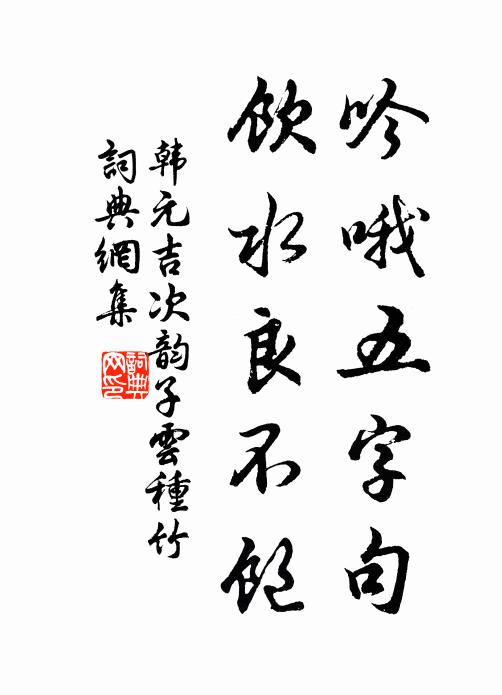 吟哦五字句
飲水良不飽
韩元吉次韵子雲種竹
詞典網集
詞典網印